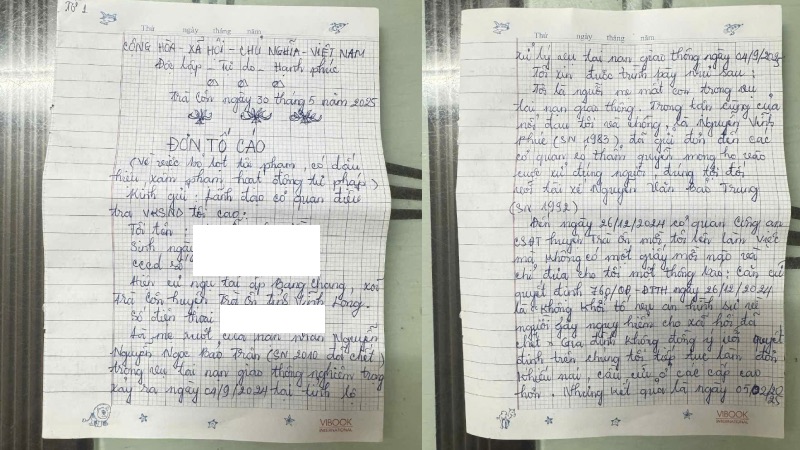 Tờ 1
Thứ ngày tháng năm
CỘNG HÒA - XÃ HỘI - CHỦ NGHĨA - VIỆT NAM
Độc lập - Tự do - Hạnh phúc
Trà Côn ngày 30 tháng 5 năm 2025
ĐƠN TỐ CÁO
(Về việc bỏ lọt tội phạm, có dấu
hiệu xâm phạm hoạt động tư pháp)
Kính gửi: Lãnh đạo cơ quan điều
tra VKSND tối cao:
Tôi tên:
Sinh ngày
CCCD số
Hiện cư ngụ tại ấp Bang Chang, xã
Trà Côn huyện Trà Ôn tỉnh Vĩnh Long.
Số điện thoại
Là mẹ ruột của nạn nhân Nguyễn
Nguyễn Ngọc Bảo Trân (SN 2010 đã chết)
trong vụ tai nạn giao thông nghiêm trọng
xảy ra ngày 04/9/2024 tại tỉnh lộ
VIBOOK
INTERNATIONAL
Thứ ngày tháng năm
xử lý vụ tai nạn giao thông ngày 04/9/202
Tôi xin được trình bày như sau:
Tôi là người mẹ mất con trong vụ
tai nạn giao thông. Trong tận cùng của
nỗi đau tôi và chồng là Nguyễn Vĩnh
Phúc (SN 1983) đã gửi đơn đến các
cơ quan có thẩm quyền mong họ vào
cuộc xử đúng người, đúng tội đối
với tài xế Nguyễn Văn Bảo Trung
(SN 1992)
Đến ngày 26/12/2024 cơ quan Công an
CSĐT huyện Trà Ôn mời tôi lên làm việc
mà không có một giấy mời nào và
chỉ đưa cho tôi một thông báo: căn cứ
quyết định 760/QĐ-ĐTTH ngày 26/12/2024
là "Không khởi tố vụ án hình sự vì
người gây nguy hiểm cho xã hội đã
chết" Gia đình không đồng ý với quyết
định trên chúng tôi tiếp tục làm đơn
khiếu nại, cầu cứu ở các cấp cao
hơn. Nhưng kết quả là ngày 05/02/20
25
VIBOOK
INTERNATIONAL